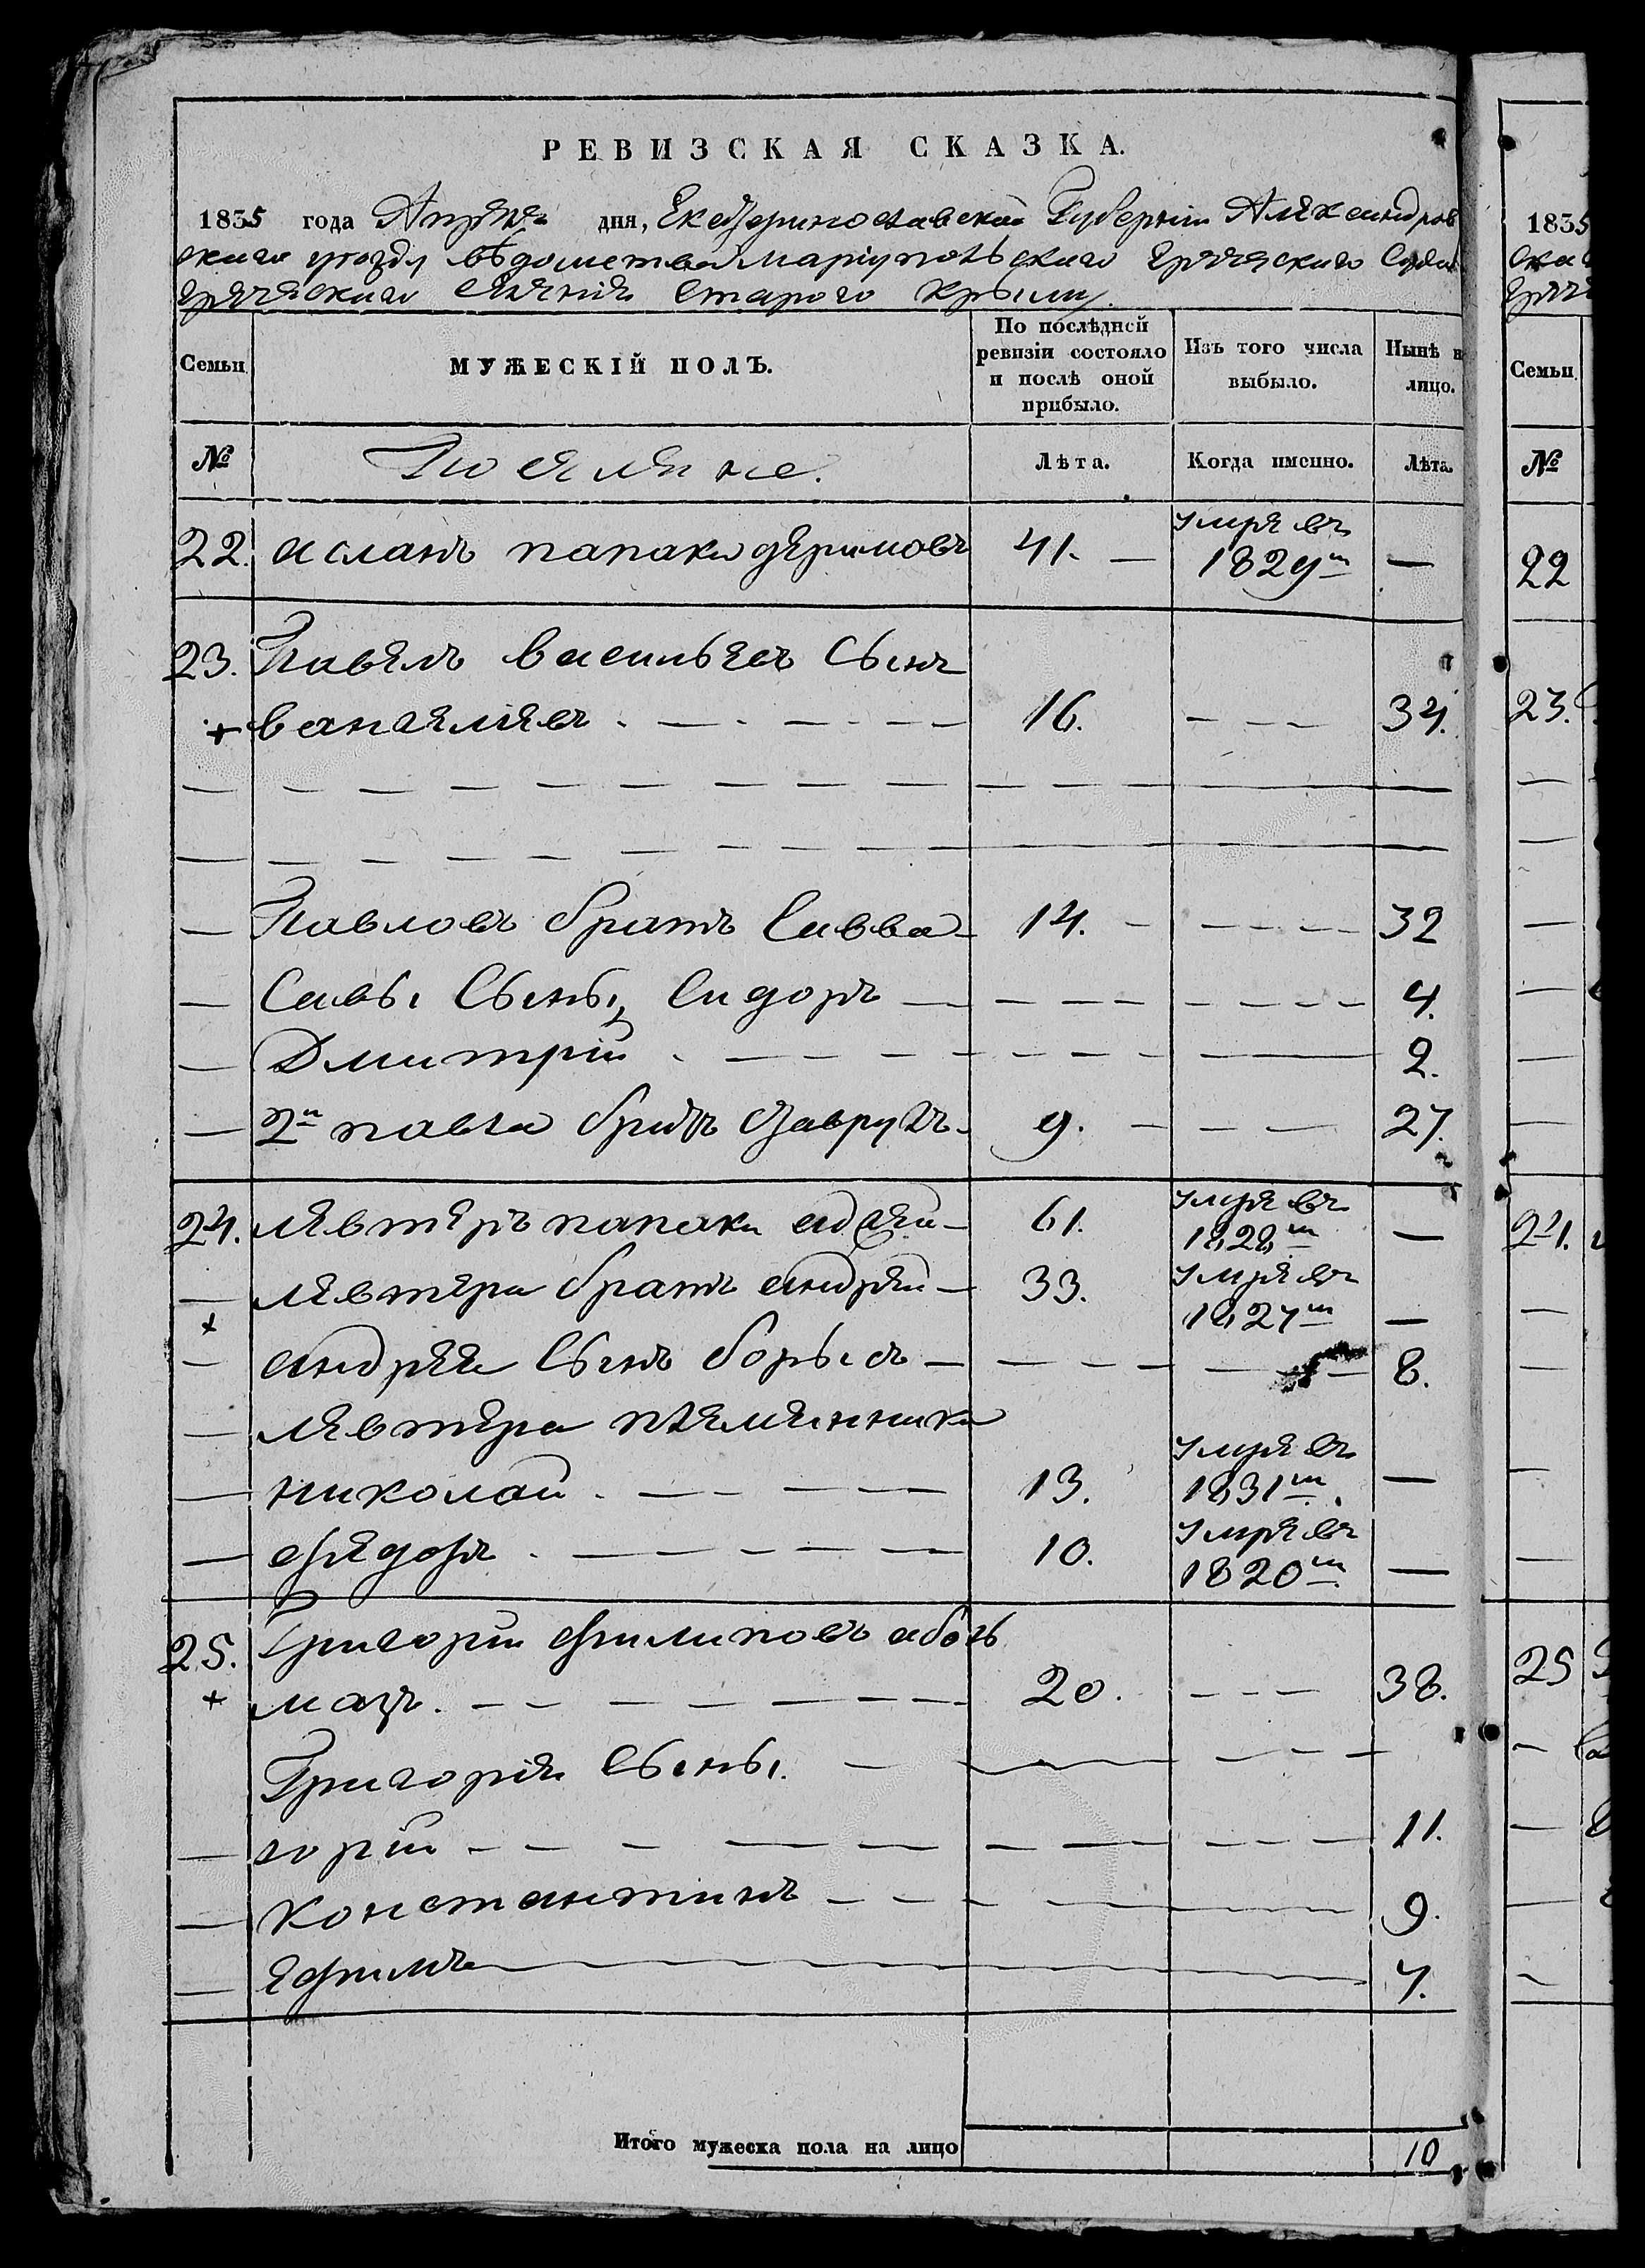 РЕВИЗСКАЯ СКАЗКА.
1835 года Апреля дня, Екатеринославской Губернии Александров
скаго уезда вѣдомства мариупольскаго греческаго Суда
греческаго селения Старого Крыму.
Семьи МУЖЕСКІЙ ПОЛЪ. По послѣдней ревизіи состояло и послѣ оной прибыло. Изъ того числа выбыло. Нынѣ на лицо.
№ Поселяне. Лѣта. Когда именно. Лѣта.
22. асланъ папаки 41. — умре въ 1829м —
23. Павелъ васильевъ Сынъ
+ 16. — — — 34.
— Павловъ братъ Савва — 14. — — — — 32
— Савы Сыны, Сидоръ — — — — — — — 4.
— Дмитрій — — — — — 2.
— 2й павла братъ — 9. — — — 27.
24. левтеръ папаки — 61. умре въ 1828м —
— левтера братъ андрей — 33. умре въ 1827м —
+
— андрея Сынъ борысъ — — — — — — 8.
— левтера племянники
— николай — — — — 13. умре въ 1831м —
— федоръ — — — — — 10. умре въ 1820м —
25. Григорій филиповъ
+ — — — — — 20. — — — 38.
Григорія Сыны. — — — —
— горій — — — — — — — — 11.
— константинъ — — — — — — 9.
— ефимъ — — — — 7.
Итого мужеска пола на лицо 10
1835
Семьи
№
22
23.
24.
25